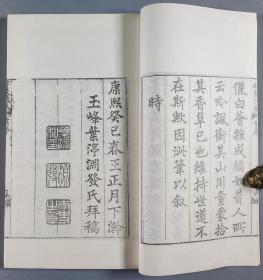 儼白薈雜成帰如昔人所
云吟諷銜其山川童蒙拾
其香草已也維持世道不
在斯歟因洪筆以敘
時
康熙癸巳春王正月下澣
玉峰葉淳淵發氏拜稿